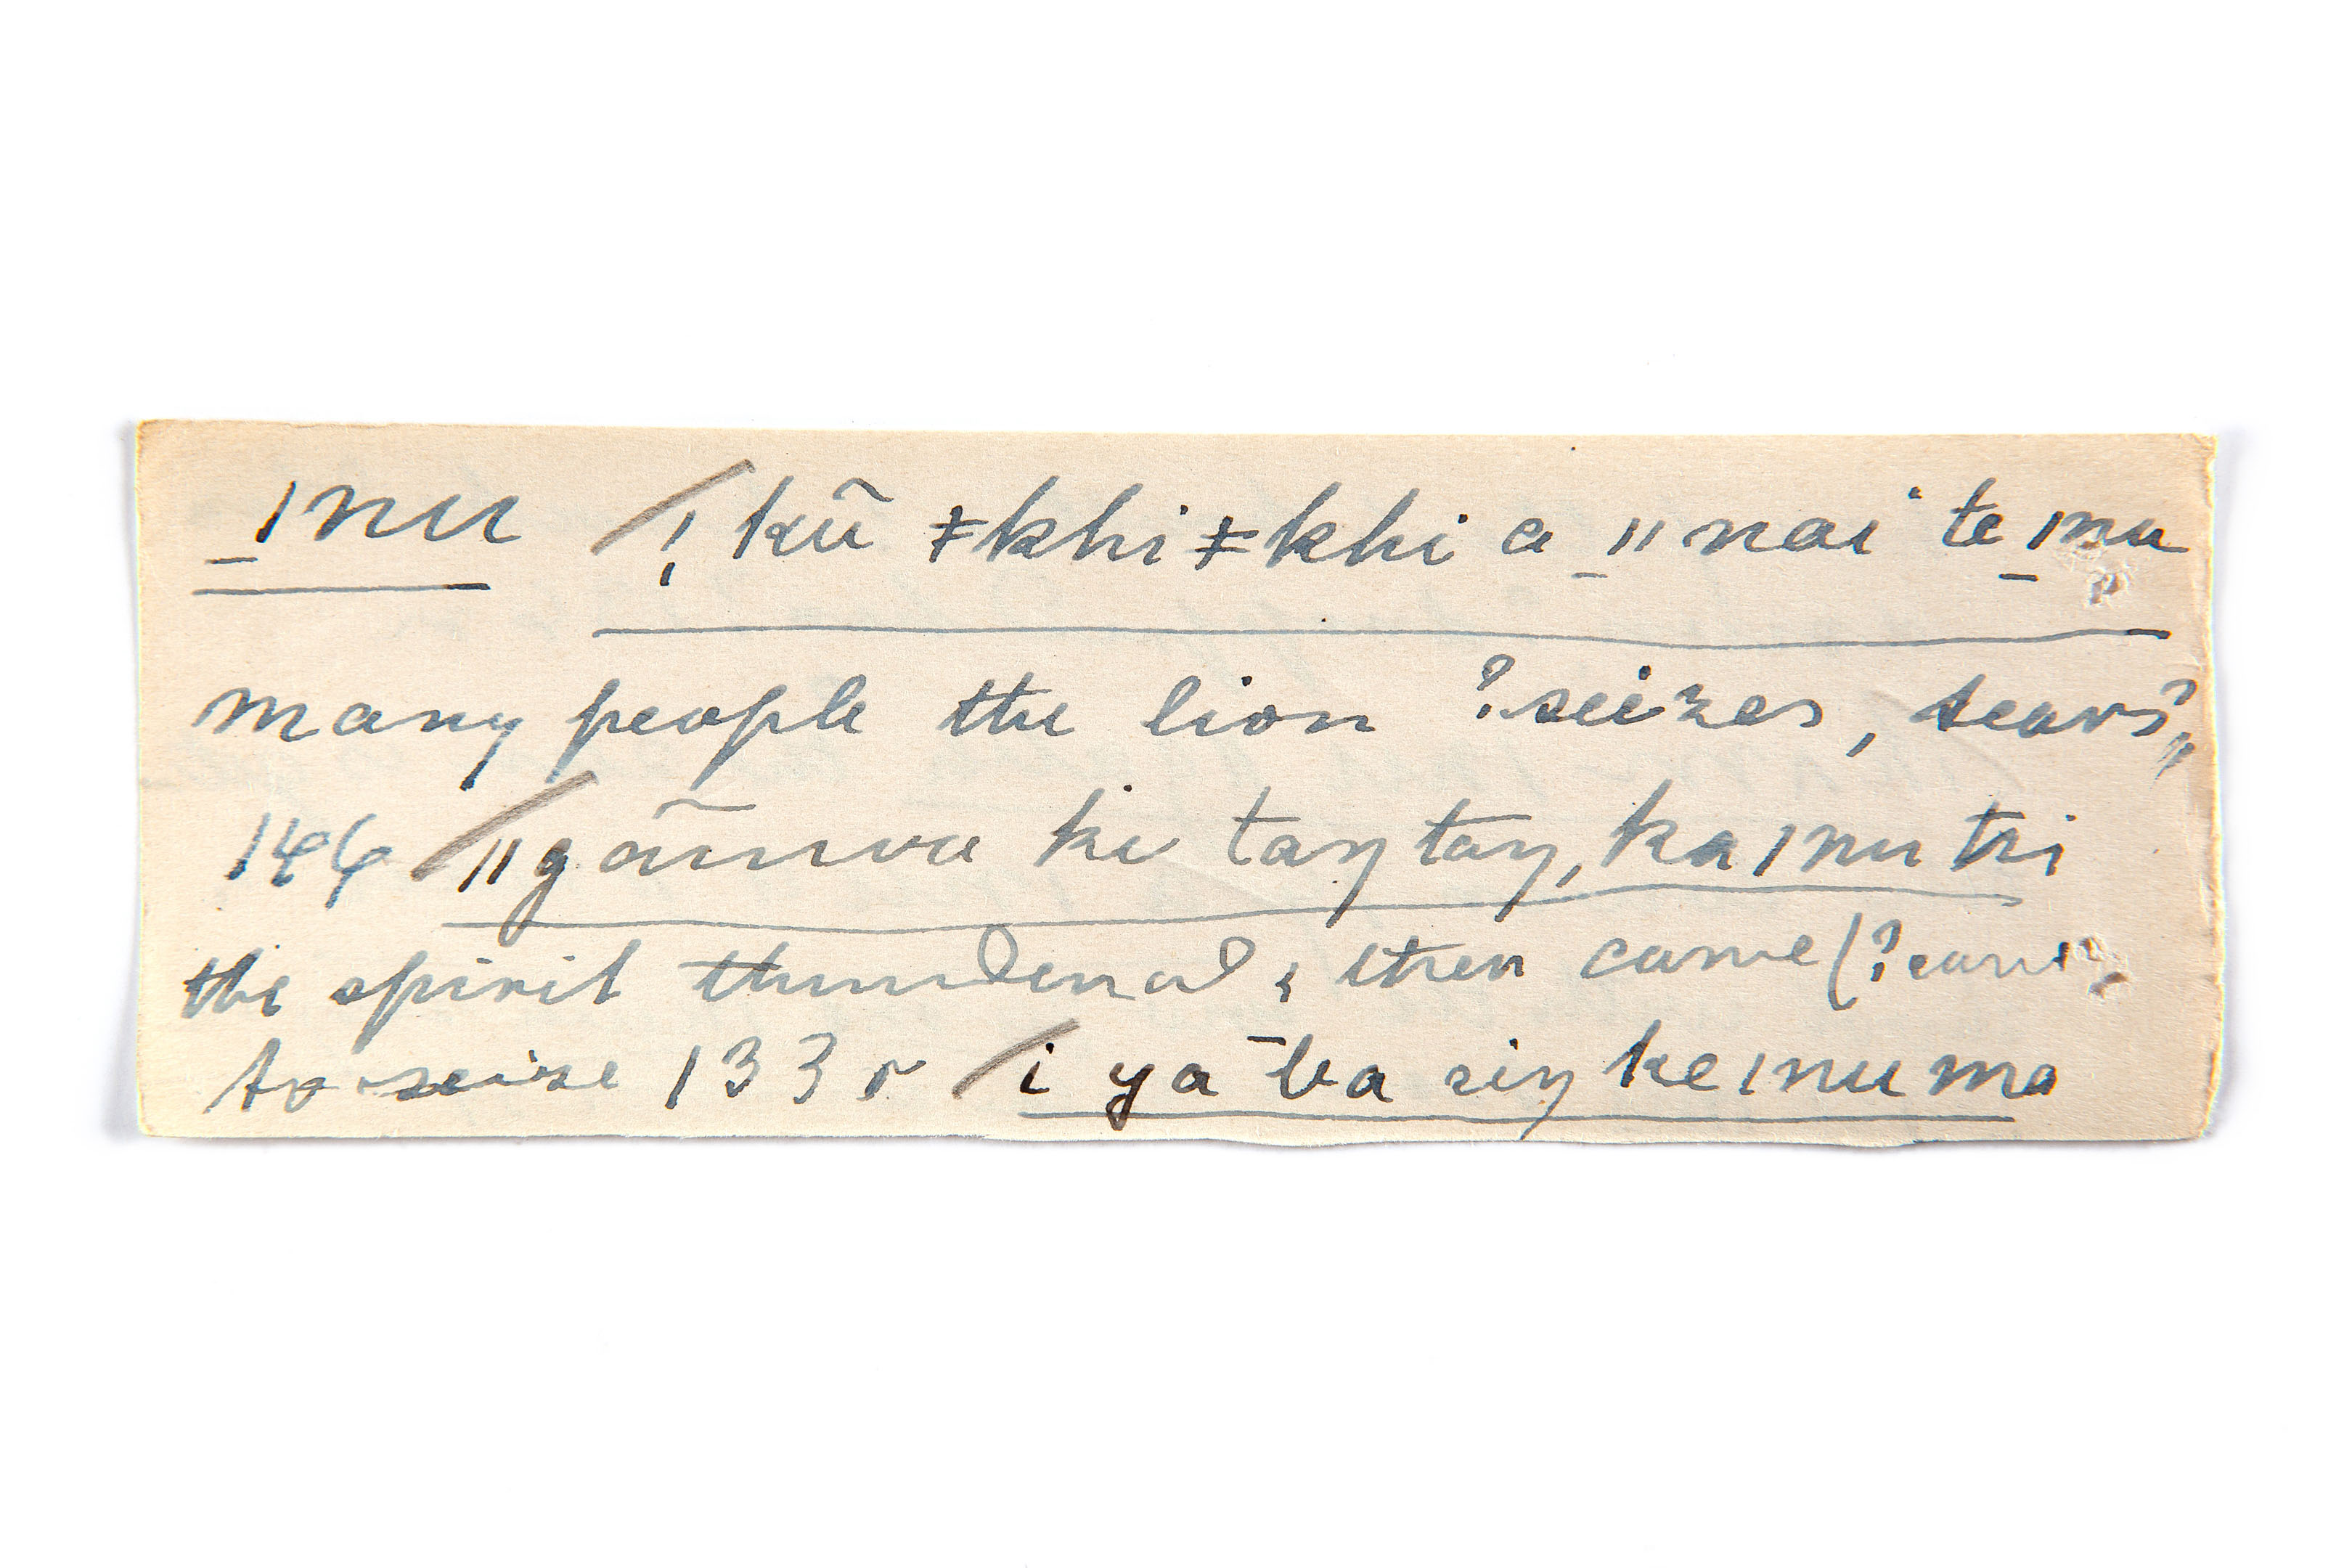 _ǀnu /ǃkũ ǂkhiǂkhi a _ǁnai te _ǀnu
many people the lion ?seizes, tears?,
144 /ǁgãũwa ke taŋtaŋ, ka ǀnu tsi
the spirit thundered, then came (?came
to seize 133r /i ya ba siŋ ke ǀnu ma